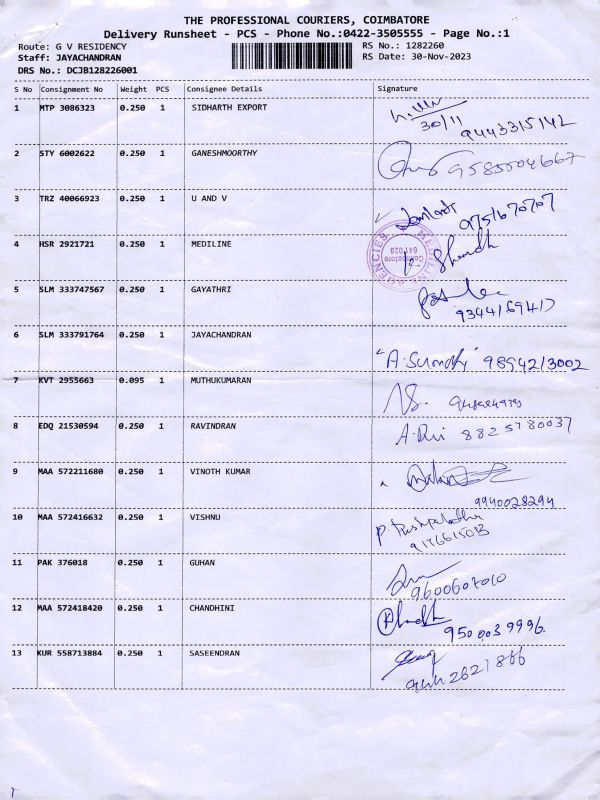 THE PROFESSIONAL COURIERS, COIMBATORE
Delivery Runsheet - PCS - Phone No.:0422-3505555 - Page No.:1
Route: G V RESIDENCY RS No.: 1282260
Staff: JAYACHANDRAN RS Date: 30-Nov-2023
DRS No.: DCJB128226001
S No Consignment No Weight PCS Consignee Details Signature
1 MTP 3086323 0.250 1 SIDHARTH EXPORT
30/11
9443315142
2 STY 6002622 0.250 1 GANESHMOORTHY 9585504667
3 TRZ 40066923 0.250 1 U AND V
9751670707
4 HSR 2921721 0.250 1 MEDILINE
MEDILINE AGENCIES
Coimbatore
641 028
5 SLM 333747567 0.250 1 GAYATHRI
9344169417
6 SLM 333791764 0.250 1 JAYACHANDRAN
9894213002
7 KVT 2955663 0.095 1 MUTHUKUMARAN
8 EDQ 21530594 0.250 1 RAVINDRAN 8825780037
9 MAA 572211680 0.250 1 VINOTH KUMAR
9940028294
10 MAA 572416632 0.250 1 VISHNU
11 PAK 376018 0.250 1 GUHAN
9600607010
12 MAA 572418420 0.250 1 CHANDHINI
9500039996
13 KUR 558713884 0.250 1 SASEENDRAN